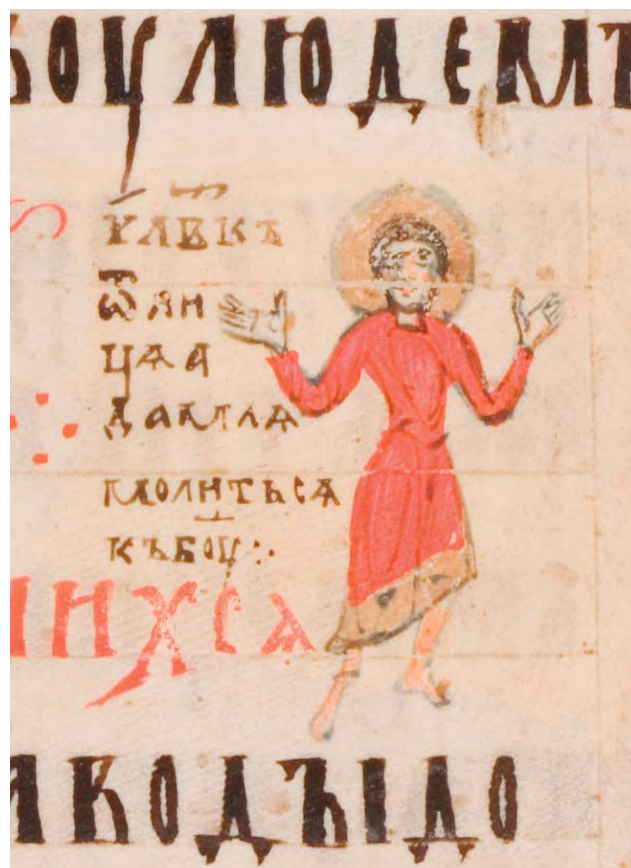 воу людемъ
чл҃вкъ
ѿ ли
ца а
дамлѧ
молитьсѧ
къ б҃оу :·
нихсѧ
водъı до